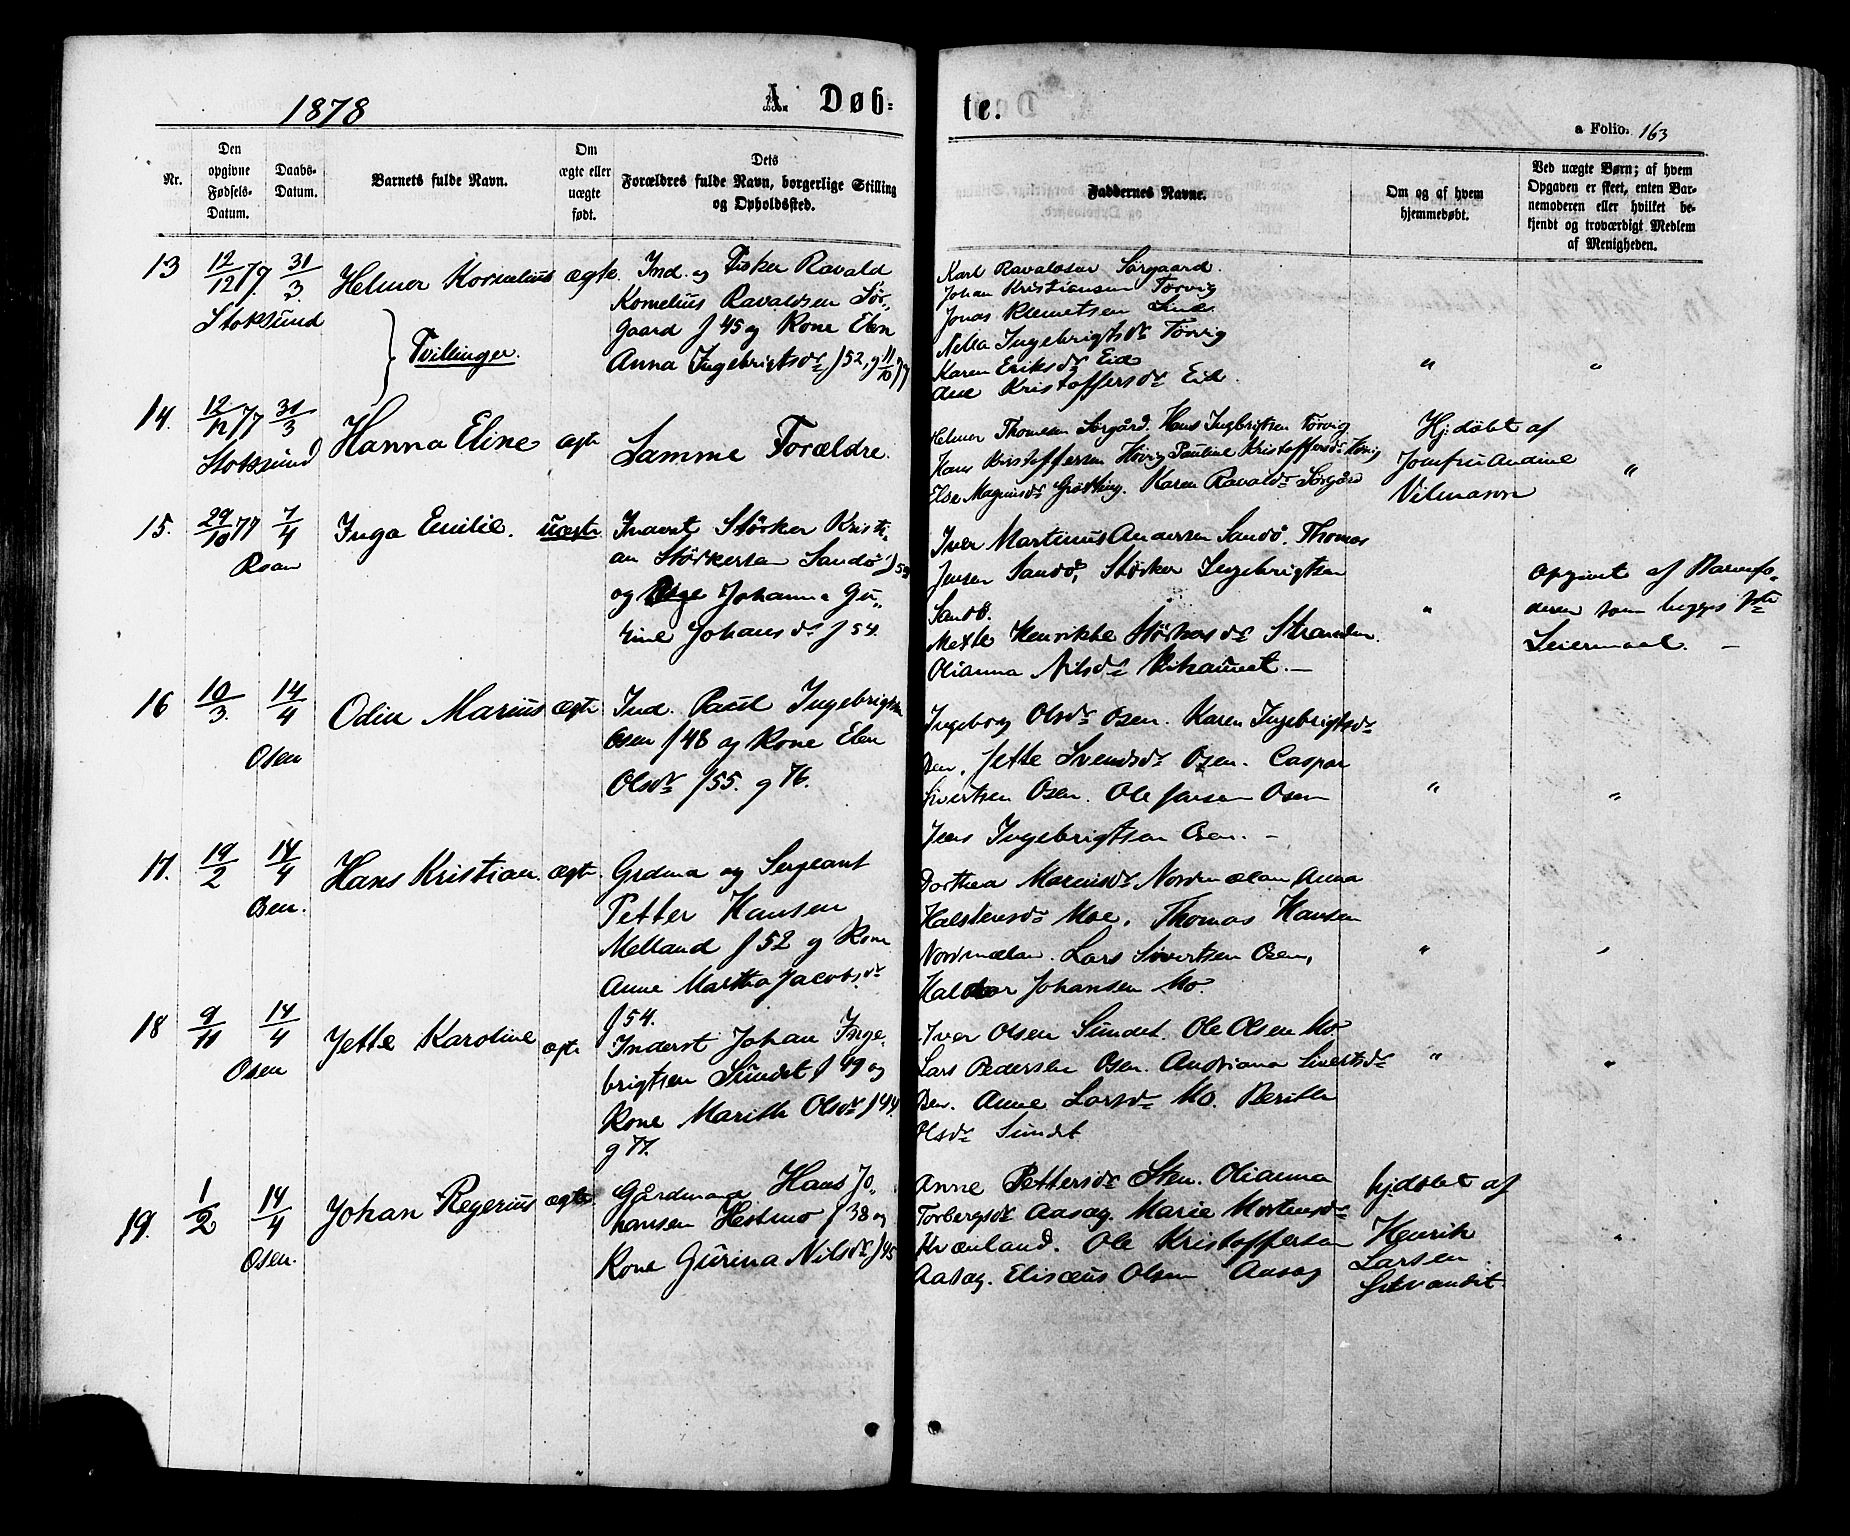 1878
A. Døb=
te.
a Folio. 163
Nr.
Den opgivne Fødsels-Datum.
Daabs-Datum.
Barnets fulde Navn.
Om ægte eller uægte født.
Dets Forældres fulde Navn, borgerlige Stilling og Opholdssted.
Faddernes Navne.
Om og af hvem hjemmedøbt.
Ved uægte Børn; af hvem Opgaven er skeet, enten Barnemoderen eller hvilket bekjendt og troværdigt Medlem af Menigheden.
13
12/12 77.
31/3
Stoksund
Helmer Kornelius
Tvillinger.
ægte.
Ind. og Fisker Ravald
Kornelius Ravaldsen Sør-
gaard f 45 og Kone Elen
Anna Ingebrigtsdr f 52, g 11/10 77
Karl Ravaldsen Sørgaard.
Johan Kristiansen Tørvig
Jonas Klemetsen
Ingebrigtsdr Tørvig
Karen Eriksdr Eid
Ane Kristoffersdr Eid.
"
"
14.
12/12 77
31/3
Stoksund
Hanna Eline
ægte
Samme Forældre.
Helmer Thomesen Sørgård. Hans Ingbrigtsen Tørvig
Hans Kristoffersen Høvig Pauline Kristoffersdr
Else Magnusdr Grøtting. Karen Ravaldsdr Sørgård
Hj.døbt af
Jomfru Andine
"
15.
29/10 77
7/4
Roan
Inga Emilie.
uægte
Inderst Størker Kristi-
an Størkersen Sandø f 53
og Pige Johanna Gu-
rine Johansdr f 54.
Iver Martinus Andersen Sandø. Thomas
Jensen Sandø, Størker Ingebrigtsen
Sandø.
Mette Henrikke Størkersdr Stranden.
Olianna Nilsdr
"
Opgivet af Barnefa-
deren som begges 1ste
Leiermaal. —
16
10/3.
14/4
Osen
Odin Marius
ægte
Ind. Paul Ingebrigtsen
Osen f 48 og Kone Elen
Olsdr f 55. g 76.
Ingeborg Olsdr Osen. Karen Ingebrigtsdr
Osen. Jette Svendsdr Osen. Caspar
Sivertsen Osen. Ole Jensen Osen
Jens Ingebrigtsen Osen. —
"
"
17.
19/2
14/4
Osen.
Hans Kristian.
ægte.
Grdma og Sergeant
Petter Hansen
Melland f 52 g Kone
Anne Martha Jacobsdr
f 54.
Dorthea Mariusdr Nordmælan Anna
Halstensdr Moe, Thomas Hansen
Nordmælan. Lars Sivertsen Osen,
Haldor Johansen Mo.
"
"
18
9/11
14/4
Osen
Jette Karoline
ægte
Inderst Johan Inge-
brigtsen Sundet f 49 og
Kone Marith Olsdr f 44.
g 77.
Iver Olsen Sundet. Ole Olsen Mo.
Lars Pedersen Osen. Andriana Sivertsdr
Osen. Anne Larsdr Mo. Berith
Olsdr Sundet
"
"
19.
1/2
14/4
Osen.
Johan Regerius
ægte
Gårdmand Hans Jo-
hansen Hestmo f 38 og
Kone Gurina Nilsdr f 45
Anne Pettersdr Sten. Olianna
Torbergsdr Aasag. Marie Mortensdr
Kvænland. Ole Kristoffersen
Aasag. Elisæus Olsen Aasag
hj.døbt af
Henrik
Larsen
"